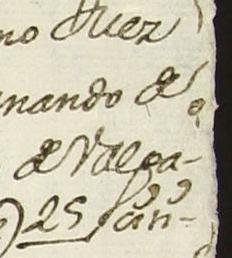 no Diez
nando de
de Valga-
25 an-